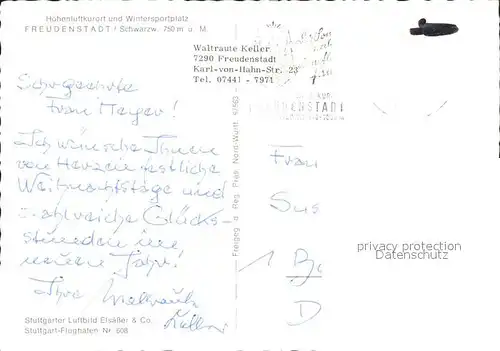 Höhenluftkurort und Wintersportplatz
FREUDENSTADT / Schwarzw. 750 m ü. M.
Waltraute Keller
7290 Freudenstadt
Karl-von-Hahn-Str. 23
Tel. 07441 - 7971
Sehr geehrte
Frau Meyer!
Ich wünsche Ihnen
von Herzen festliche
Weihnachtstage und
zahlreiche Glücks-
stunden im
neuen Jahr!
Ihre Waltraute
Keller
Freigeg. d. Reg. Präs. Nord-Württ.
FREUDENSTADT
Frau
Sus
1 Be
D
privacy protection
Datenschutz
Stuttgarter Luftbild Elsäßer & Co.
Stuttgart-Flughafen Nr 608